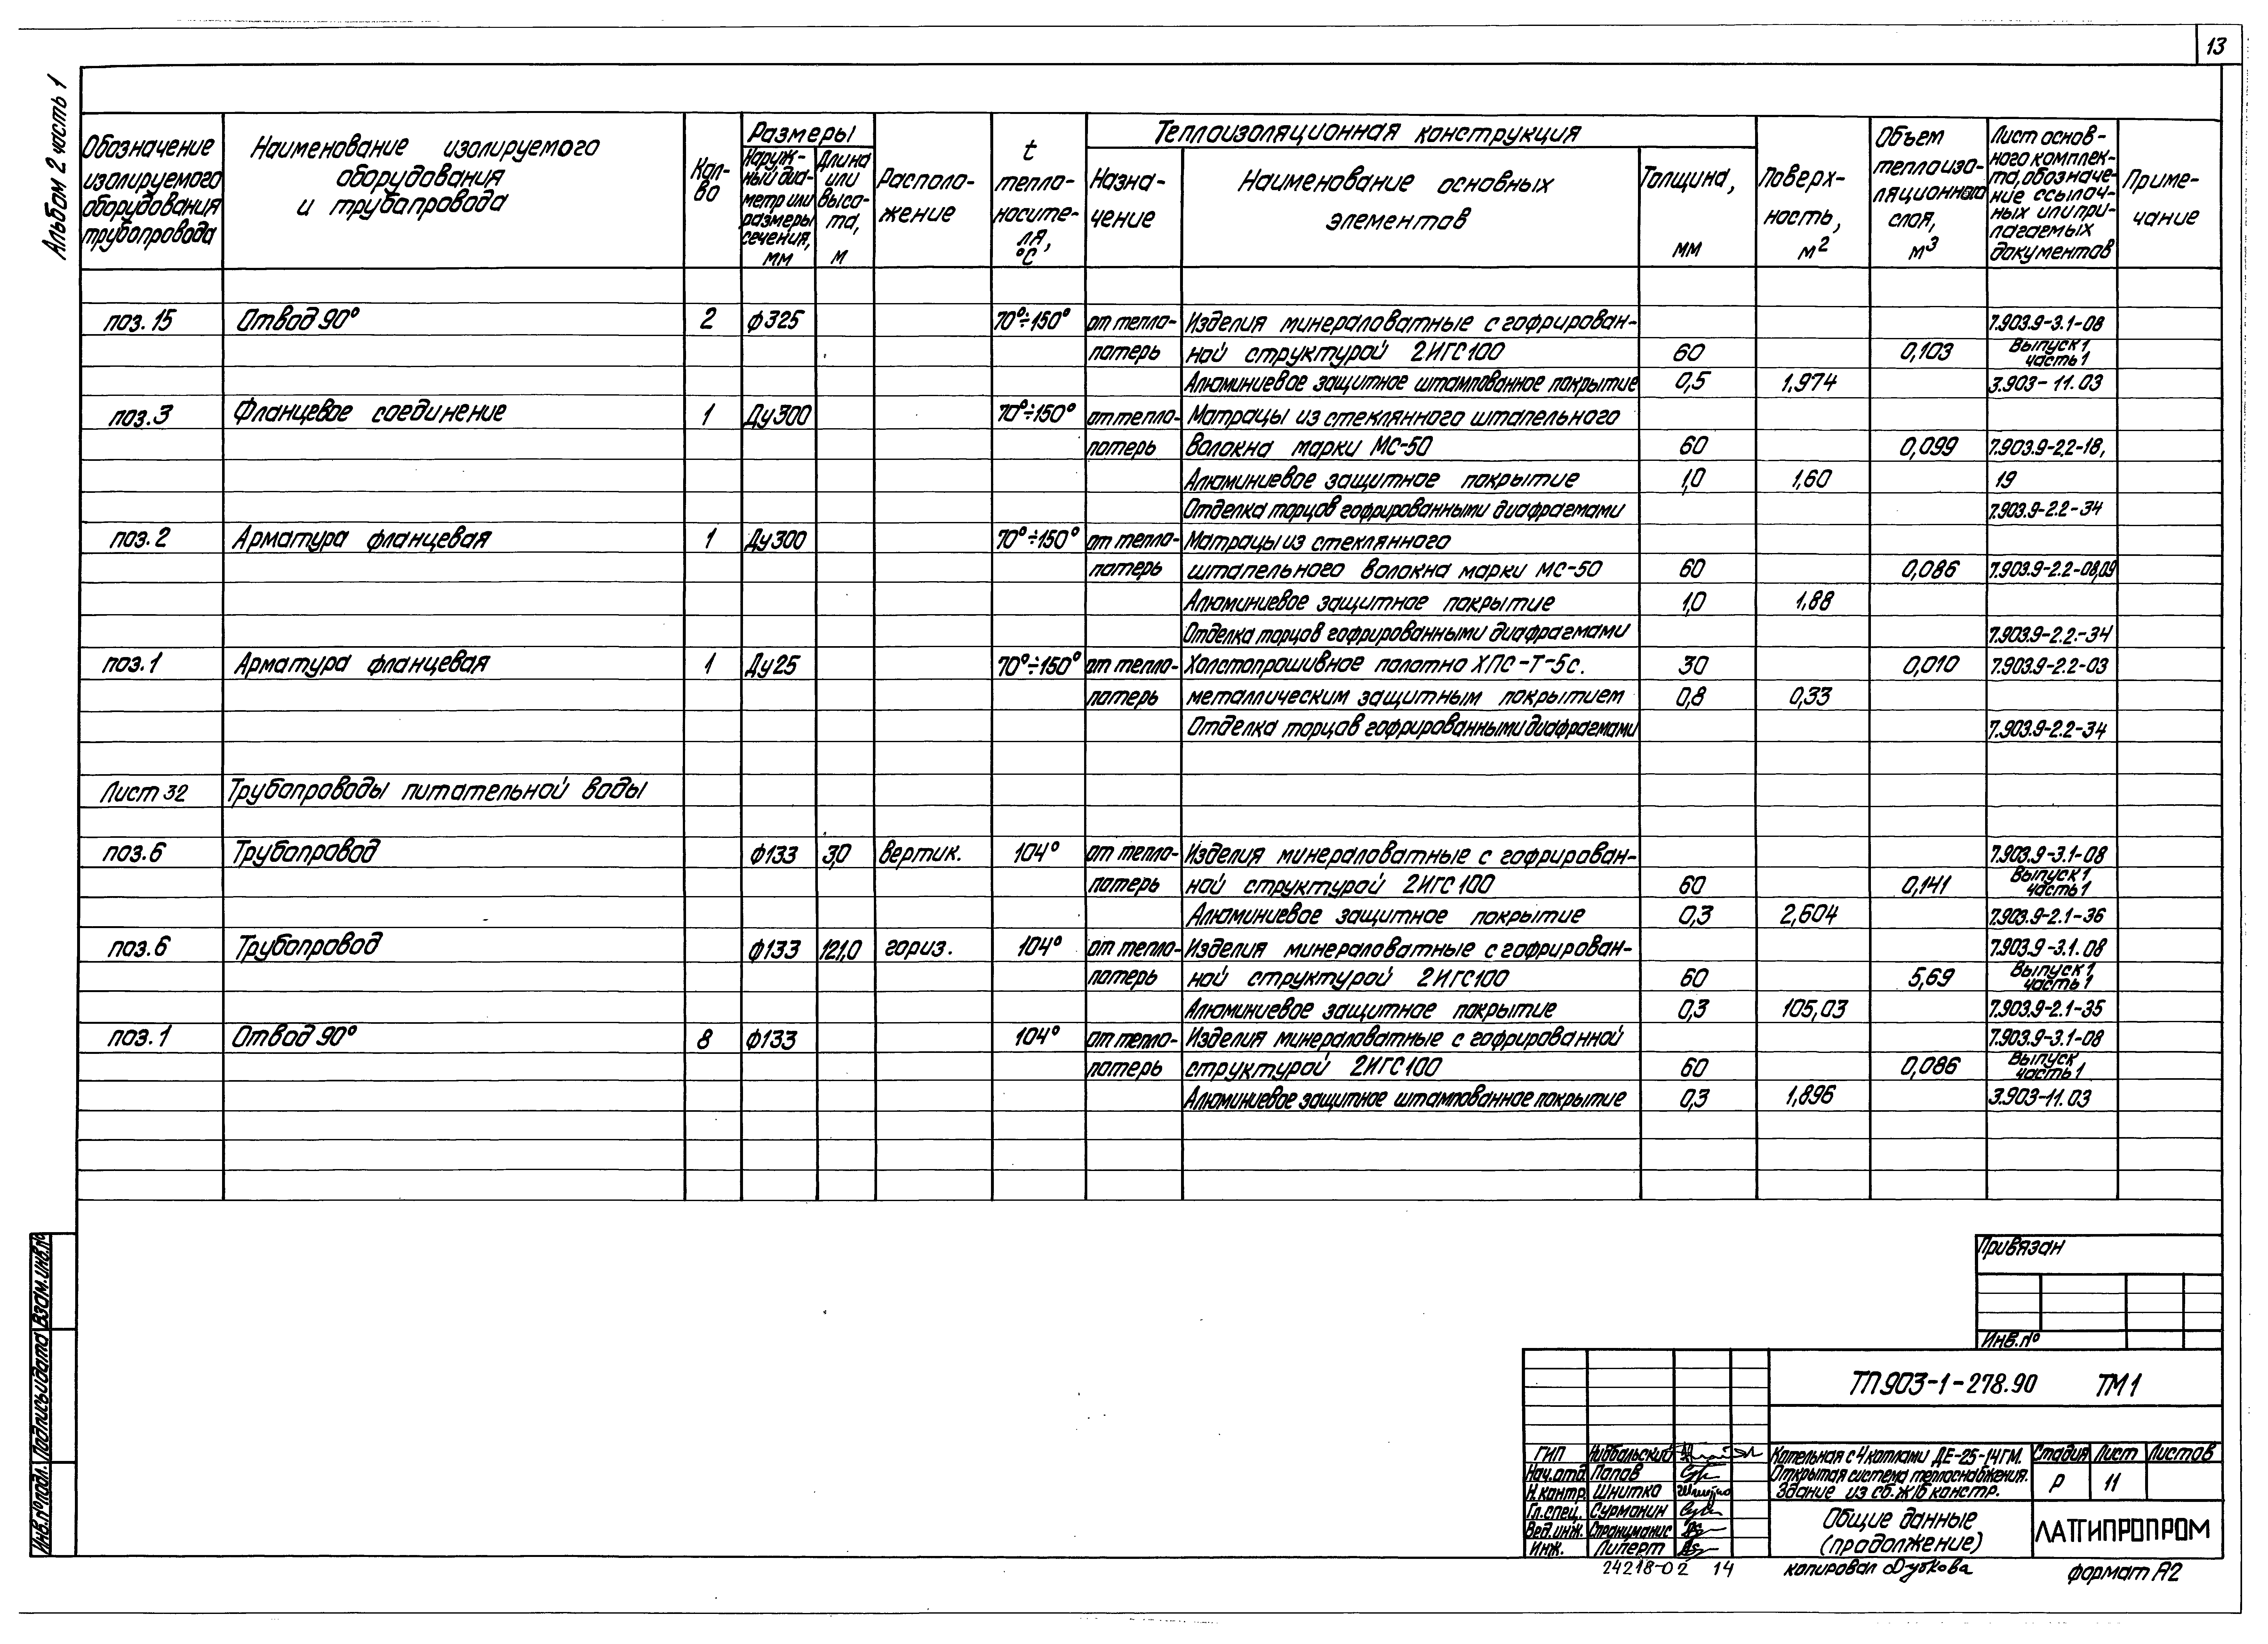 13
Альбом 2 часть 1
Обозначение изолируемого оборудования трубопровода
Наименование изолируемого оборудования и трубопровода
Кол-во
Размеры
Наруж-ный диа-метр или размеры сечения, мм
Длина или высо-та, м
Располо-жение
t тепло-носите-ля, °С
Теплоизоляционная конструкция
Назна-чение
Наименование основных элементов
Толщина, мм
Поверх-ность, м²
Объем теплоизо-ляционного слоя, м³
Лист основ-ного комплек-та, обозначе-ние ссылоч-ных или при-лагаемых документов
Приме-чание
поз. 15 Отвод 90° 2 ф325 70°÷150° от тепло- Изделия минераловатные с гофрирован- 7.903.9-3.1-08
потерь ной структурой 2ИГС100 60 0,103 Выпуск 1 часть 1
Алюминиевое защитное штампованное покрытие 0,5 1.974 3.903-11.03
поз. 3 Фланцевое соединение 1 Ду300 70°÷150° от тепло- Матрацы из стеклянного штапельного
потерь волокна марки МС-50 60 0,099 7.903.9-2.2-18,
Алюминиевое защитное покрытие 1,0 1,60 19
Отделка торцов гофрированными диафрагмами 7.903.9-2.2-34
поз. 2 Арматура фланцевая 1 Ду300 70°÷150° от тепло- Матрацы из стеклянного
потерь штапельного волокна марки МС-50 60 0,086 7.903.9-2.2-08,09
Алюминиевое защитное покрытие 1,0 1,88
Отделка торцов гофрированными диафрагмами 7.903.9-2.2-34
поз. 1 Арматура фланцевая 1 Ду25 70°÷150° от тепло- Холстопрошивное полотно ХПС-Т-5с. 30 0,010 7.903.9-2.2-03
потерь металлическим защитным покрытием 0,8 0,33
Отделка торцов гофрированными диафрагмами 7.903.9-2.2-34
Лист 32 Трубопроводы питательной воды
поз. 6 Трубопровод ф133 3,0 вертик. 104° от тепло- Изделия минераловатные с гофрирован- 7.903.9-3.1-08
потерь ной структурой 2ИГС100 60 0,141 Выпуск 1 часть 1
Алюминиевое защитное покрытие 0,3 2,604 7.903.9-2.1-36
поз. 6 Трубопровод ф133 121,0 гориз. 104° от тепло- Изделия минераловатные с гофрирован- 7.903.9-3.1.08
потерь ной структурой 2ИГС100 60 5,69 Выпуск 1 часть 1
Алюминиевое защитное покрытие 0,3 105,03 7.903.9-2.1-35
поз. 1 Отвод 90° 8 ф133 104° от тепло- Изделия минераловатные с гофрированной 7.903.9-3.1-08
потерь структурой 2ИГС100 60 0,086 Выпуск 1 часть 1
Алюминиевое защитное штампованное покрытие 0,3 1,896 3.903-11.03
Привязан
Инв. №
ТП 903-1-278.90 ТМ1
ГИП
Нач. отд. Попов
Н. контр. Шнитко
Гл. спец. Сурманин
Вед. инж.
Инж. Липерт
Котельная с 4 котлами ДЕ-25-14ГМ.
Открытая система теплоснабжения.
Здание из сб. ж/б констр.
Стадия Лист Листов
Р 11
Общие данные
(продолжение)
ЛАТГИПРОПРОМ
24218-02 14
копировал Дубкова
формат А2
Инв. № подл. Подпись и дата Взам. инв. №